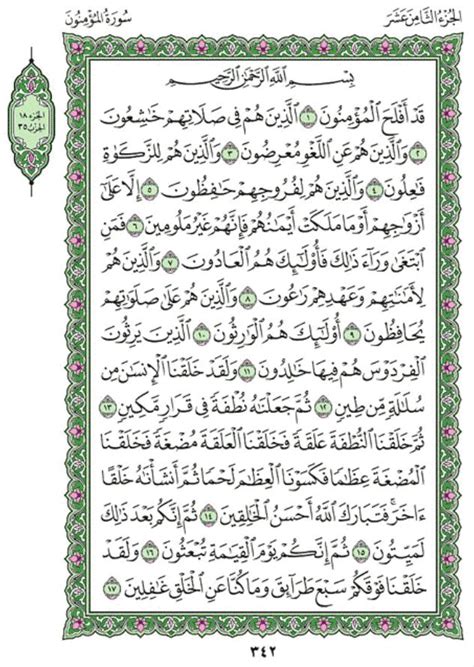 الجزء الثامن عشر
سورة المؤمنون
الجزء ١٨
الحزب ٣٥
بِسْمِ ٱللَّهِ ٱلرَّحْمَٰنِ ٱلرَّحِيمِ
قَدْ أَفْلَحَ ٱلْمُؤْمِنُونَ ١ ٱلَّذِينَ هُمْ فِى صَلَاتِهِمْ خَٰشِعُونَ
٢ وَٱلَّذِينَ هُمْ عَنِ ٱللَّغْوِ مُعْرِضُونَ ٣ وَٱلَّذِينَ هُمْ لِلزَّكَوٰةِ
فَٰعِلُونَ ٤ وَٱلَّذِينَ هُمْ لِفُرُوجِهِمْ حَٰفِظُونَ ٥ إِلَّا عَلَىٰٓ
أَزْوَٰجِهِمْ أَوْ مَا مَلَكَتْ أَيْمَٰنُهُمْ فَإِنَّهُمْ غَيْرُ مَلُومِينَ ٦ فَمَنِ
ٱبْتَغَىٰ وَرَآءَ ذَٰلِكَ فَأُو۟لَٰٓئِكَ هُمُ ٱلْعَادُونَ ٧ وَٱلَّذِينَ هُمْ
لِأَمَٰنَٰتِهِمْ وَعَهْدِهِمْ رَٰعُونَ ٨ وَٱلَّذِينَ هُمْ عَلَىٰ صَلَوَٰتِهِمْ
يُحَافِظُونَ ٩ أُو۟لَٰٓئِكَ هُمُ ٱلْوَٰرِثُونَ ١٠ ٱلَّذِينَ يَرِثُونَ
ٱلْفِرْدَوْسَ هُمْ فِيهَا خَٰلِدُونَ ١١ وَلَقَدْ خَلَقْنَا ٱلْإِنسَٰنَ مِن
سُلَٰلَةٍ مِّن طِينٍ ١٢ ثُمَّ جَعَلْنَٰهُ نُطْفَةً فِى قَرَارٍ مَّكِينٍ ١٣
ثُمَّ خَلَقْنَا ٱلنُّطْفَةَ عَلَقَةً فَخَلَقْنَا ٱلْعَلَقَةَ مُضْغَةً فَخَلَقْنَا
ٱلْمُضْغَةَ عِظَٰمًا فَكَسَوْنَا ٱلْعِظَٰمَ لَحْمًا ثُمَّ أَنشَأْنَٰهُ خَلْقًا
ءَاخَرَ فَتَبَارَكَ ٱللَّهُ أَحْسَنُ ٱلْخَٰلِقِينَ ١٤ ثُمَّ إِنَّكُم بَعْدَ ذَٰلِكَ
لَمَيِّتُونَ ١٥ ثُمَّ إِنَّكُمْ يَوْمَ ٱلْقِيَٰمَةِ تُبْعَثُونَ ١٦ وَلَقَدْ
خَلَقْنَا فَوْقَكُمْ سَبْعَ طَرَآئِقَ وَمَا كُنَّا عَنِ ٱلْخَلْقِ غَٰفِلِينَ ١٧
٣٤٢